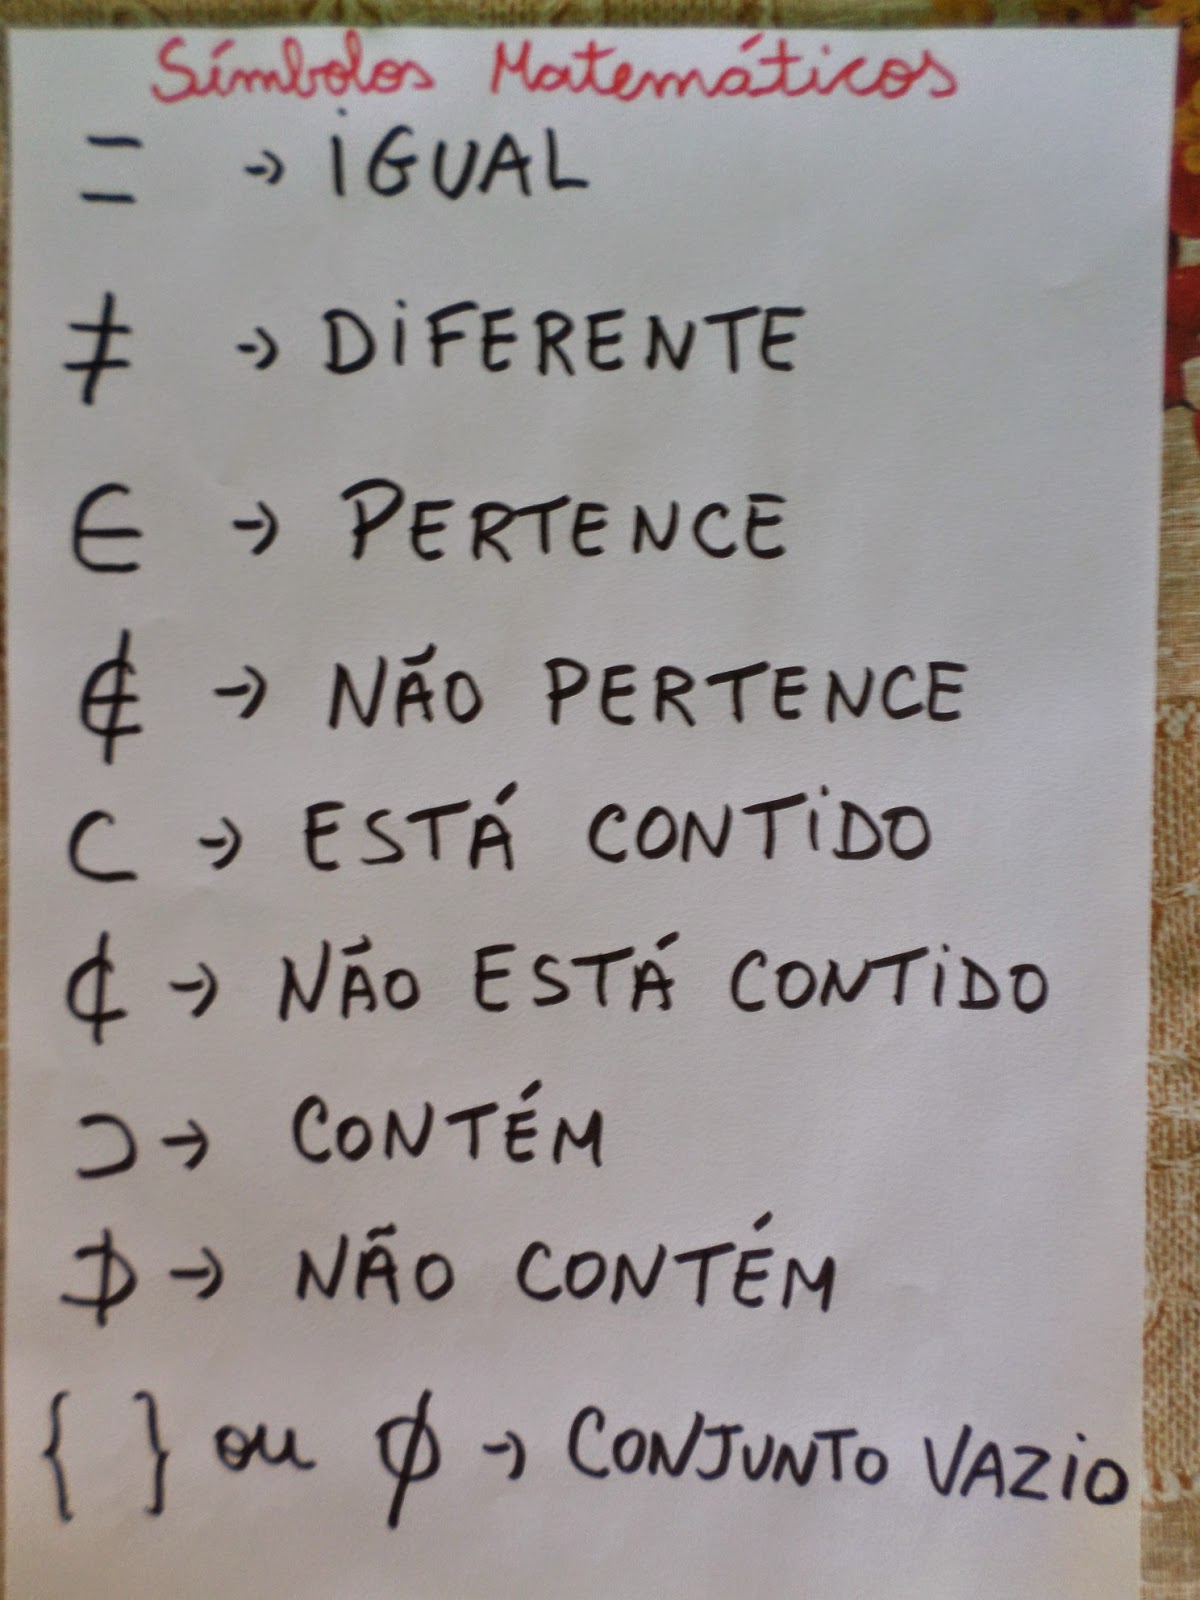 Símbolos Matemáticos
= → iGUAL
≠ → DiFERENTE
∈ → PERTENCE
∉ → NÃO PERTENCE
⊂ → ESTÁ CONTiDO
⊄ → NÃO ESTÁ CONTiDO
⊃ → CONTÉM
⊅ → NÃO CONTÉM
{ } ou ∅ → CONJUNTO VAZiO